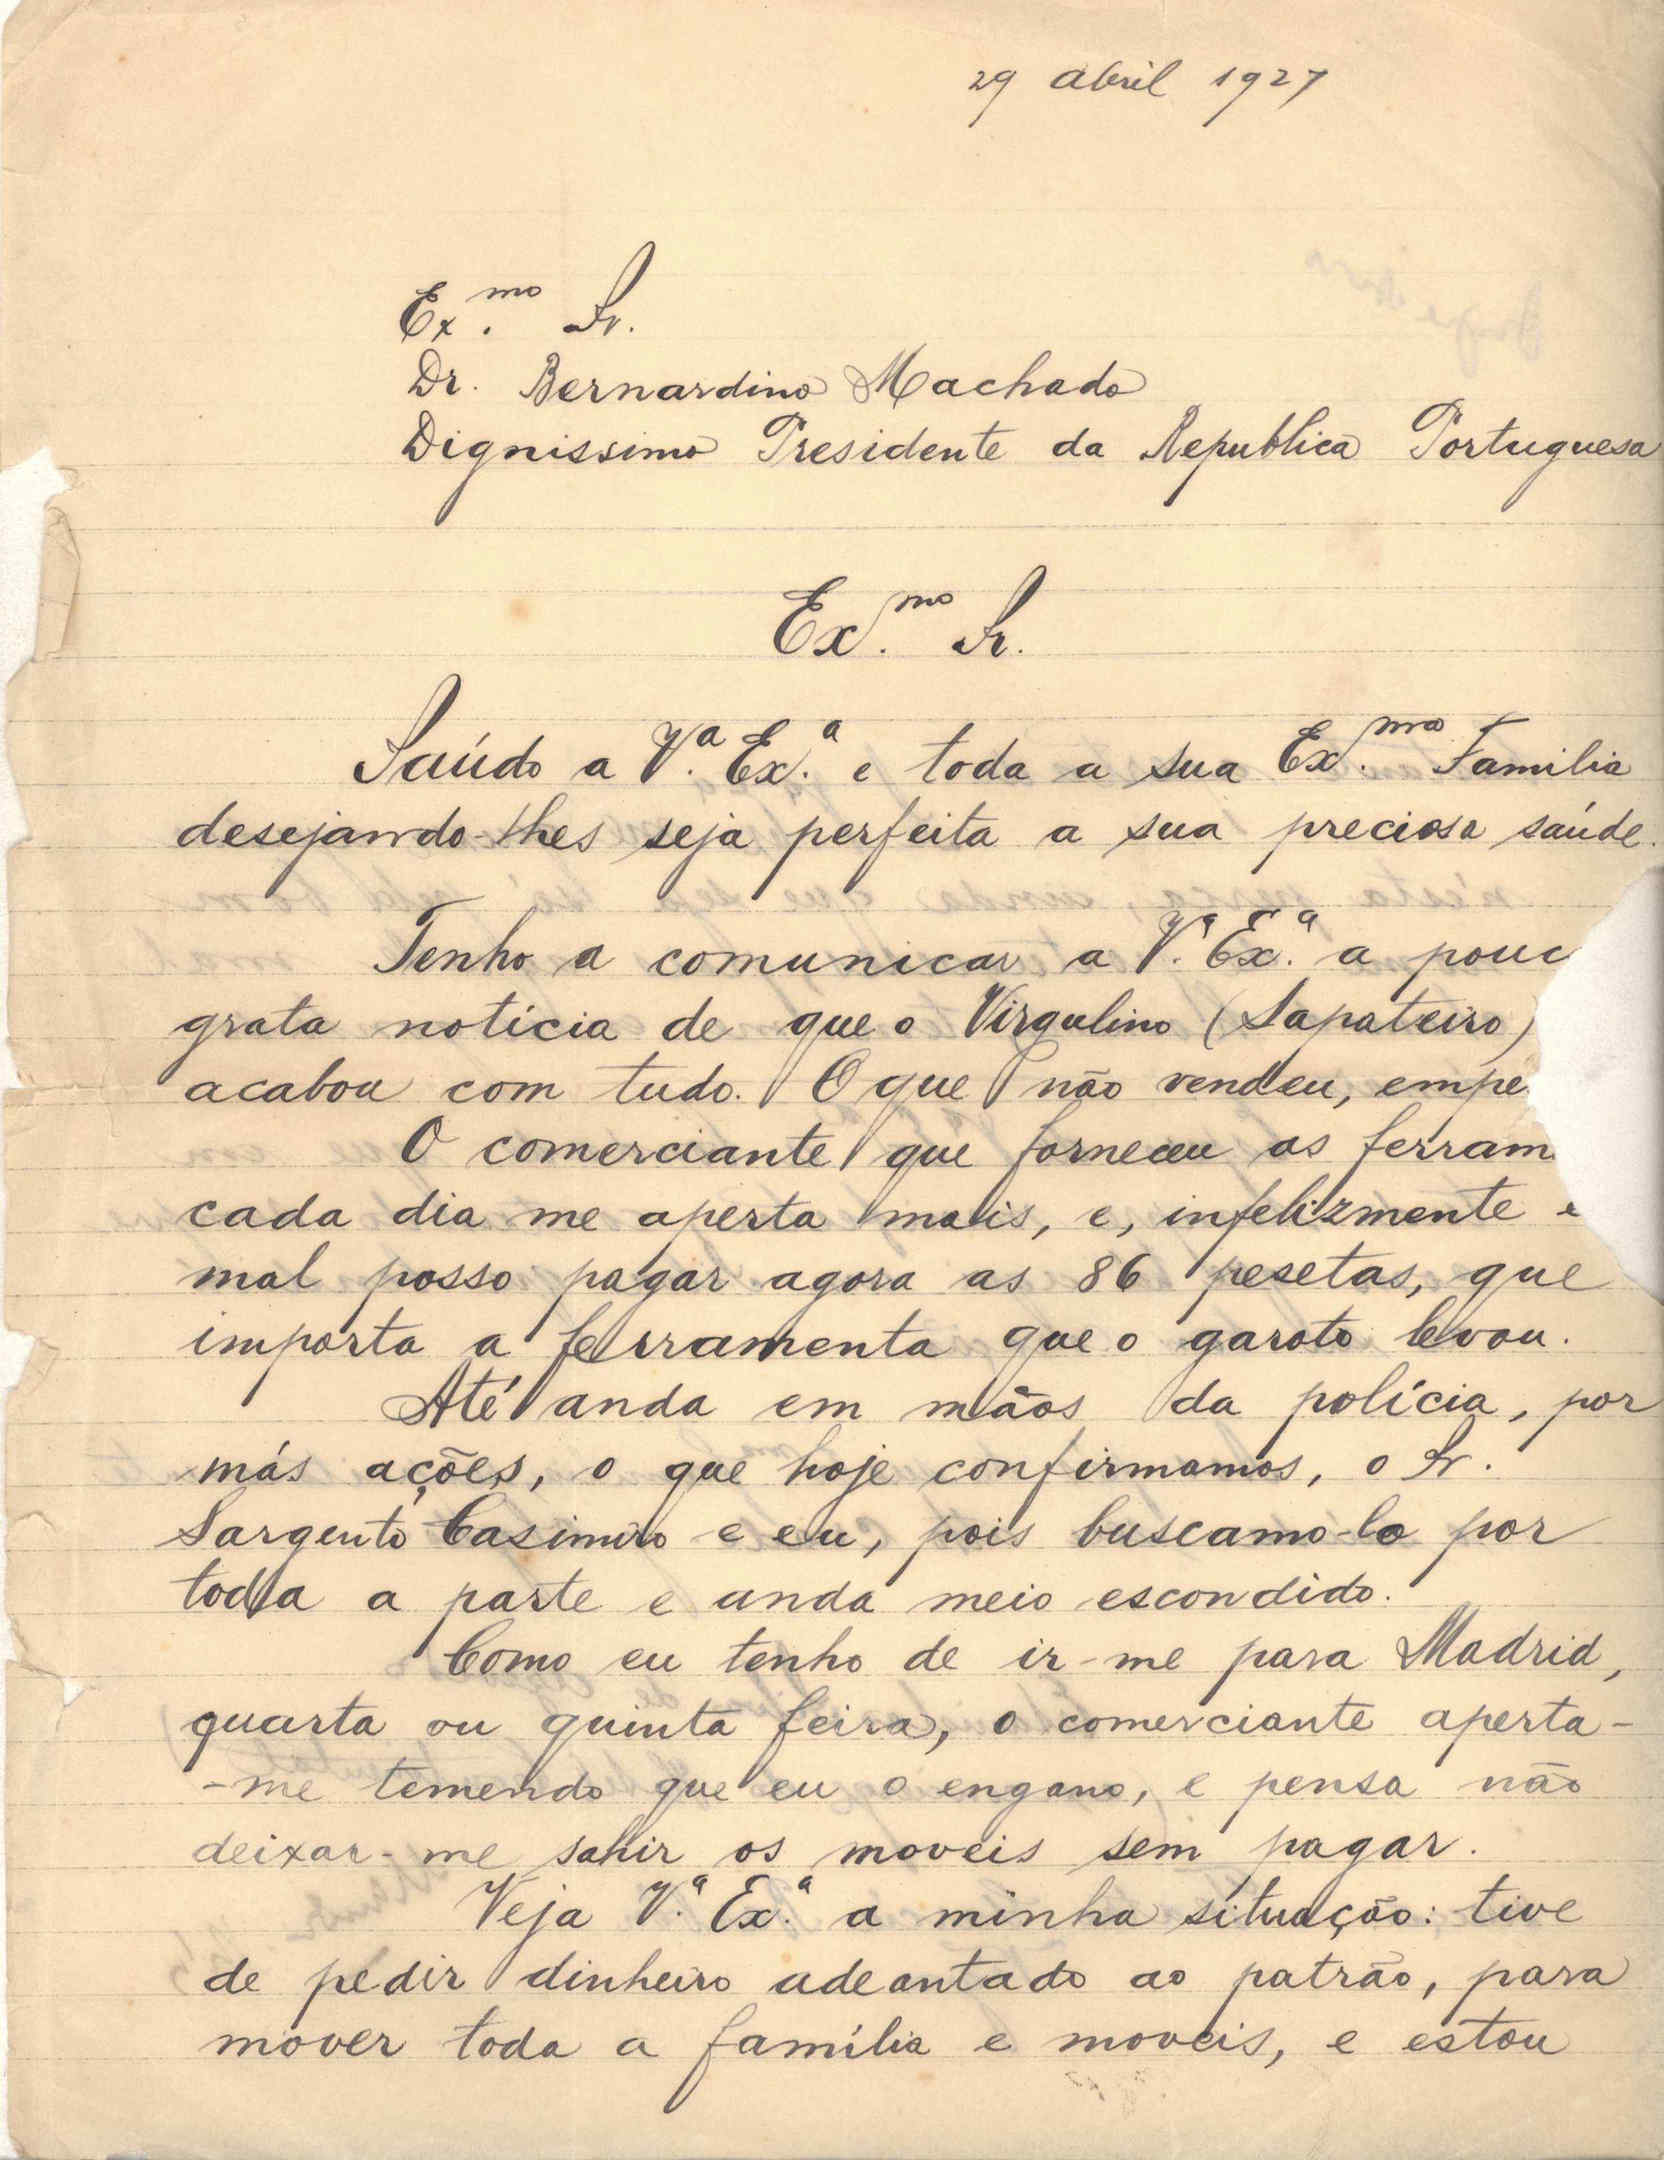 29 abril 1927
Ex.mo Sr.
Dr. Bernardino Machado
Dignissimo Presidente da Republica Portuguesa
Ex.mo Sr.
Saúdo a V.ª Ex.ª e toda a sua Ex.ma Familia
desejando-lhes seja perfeita a sua preciosa saúde.
Tenho a comunicar a V.ª Ex.ª a pouc
grata notícia de que o Virgulino (Sapateiro)
acabou com tudo. O que não vendeu, empe
O comerciante que forneceu as ferram
cada dia me aperta mais, e, infelizmente e
mal posso pagar agora as 86 pesetas, que
importa a ferramenta que o garoto levou.
Até anda em mãos da polícia, por
más ações, o que hoje confirmamos, o Sr.
Sargento Casimiro e eu, pois buscamo-lo por
toda a parte e anda meio escondido.
Como eu tenho de ir-me para Madrid,
quarta ou quinta feira, o comerciante aperta-
-me temendo que eu o engano, e pensa não
deixar-me sahir os moveis sem pagar.
Veja V.ª Ex.ª a minha situação: tive
de pedir dinheiro adeantado ao patrão, para
mover toda a família e moveis, e estou